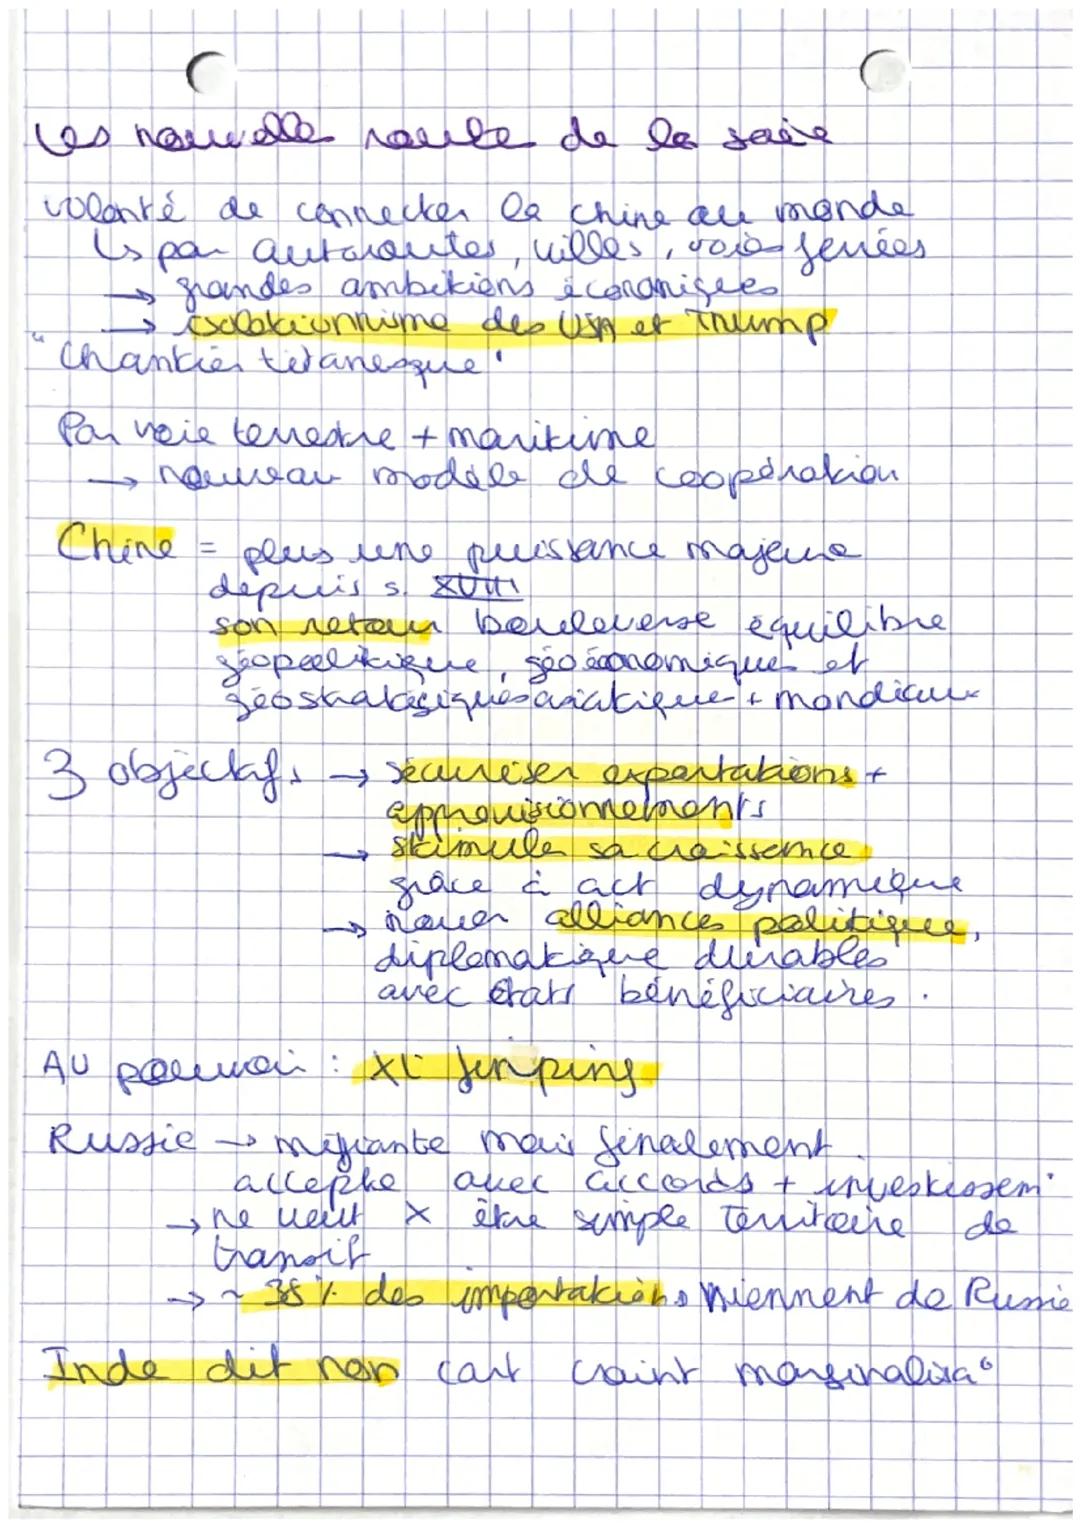 Les nouvelle route de la soie
volonté de connecter la chine au monde
↳ par autoroutes, villes, voies ferrées
→ grandes ambitions économiques
→ isolationnisme des USA et Trump
"Chantier titanesque"
Par voie terrestre + maritime
→ nouveau modèle de coopération
Chine = plus une puissance majeure
depuis s. XVIII
son retour bouleverse équilibre
géopolitique, géoéconomiques et
géostratégiques asiatique + mondiaux
3 objectifs → sécuriser exportations +
approvisionnements
→ stimule sa croissance
grâce à act dynamique
→ nouer alliances politique,
diplomatique durables
avec états bénéficiaires.
AU pouvoir : Xi Jinping
Russie → méfiante mais finalement
accepte avec accords + investissem.
→ ne veut X être simple territoire de
transit
→ ~ 38 % des importations viennent de Russie
Inde dit non cart craint marginalisa°